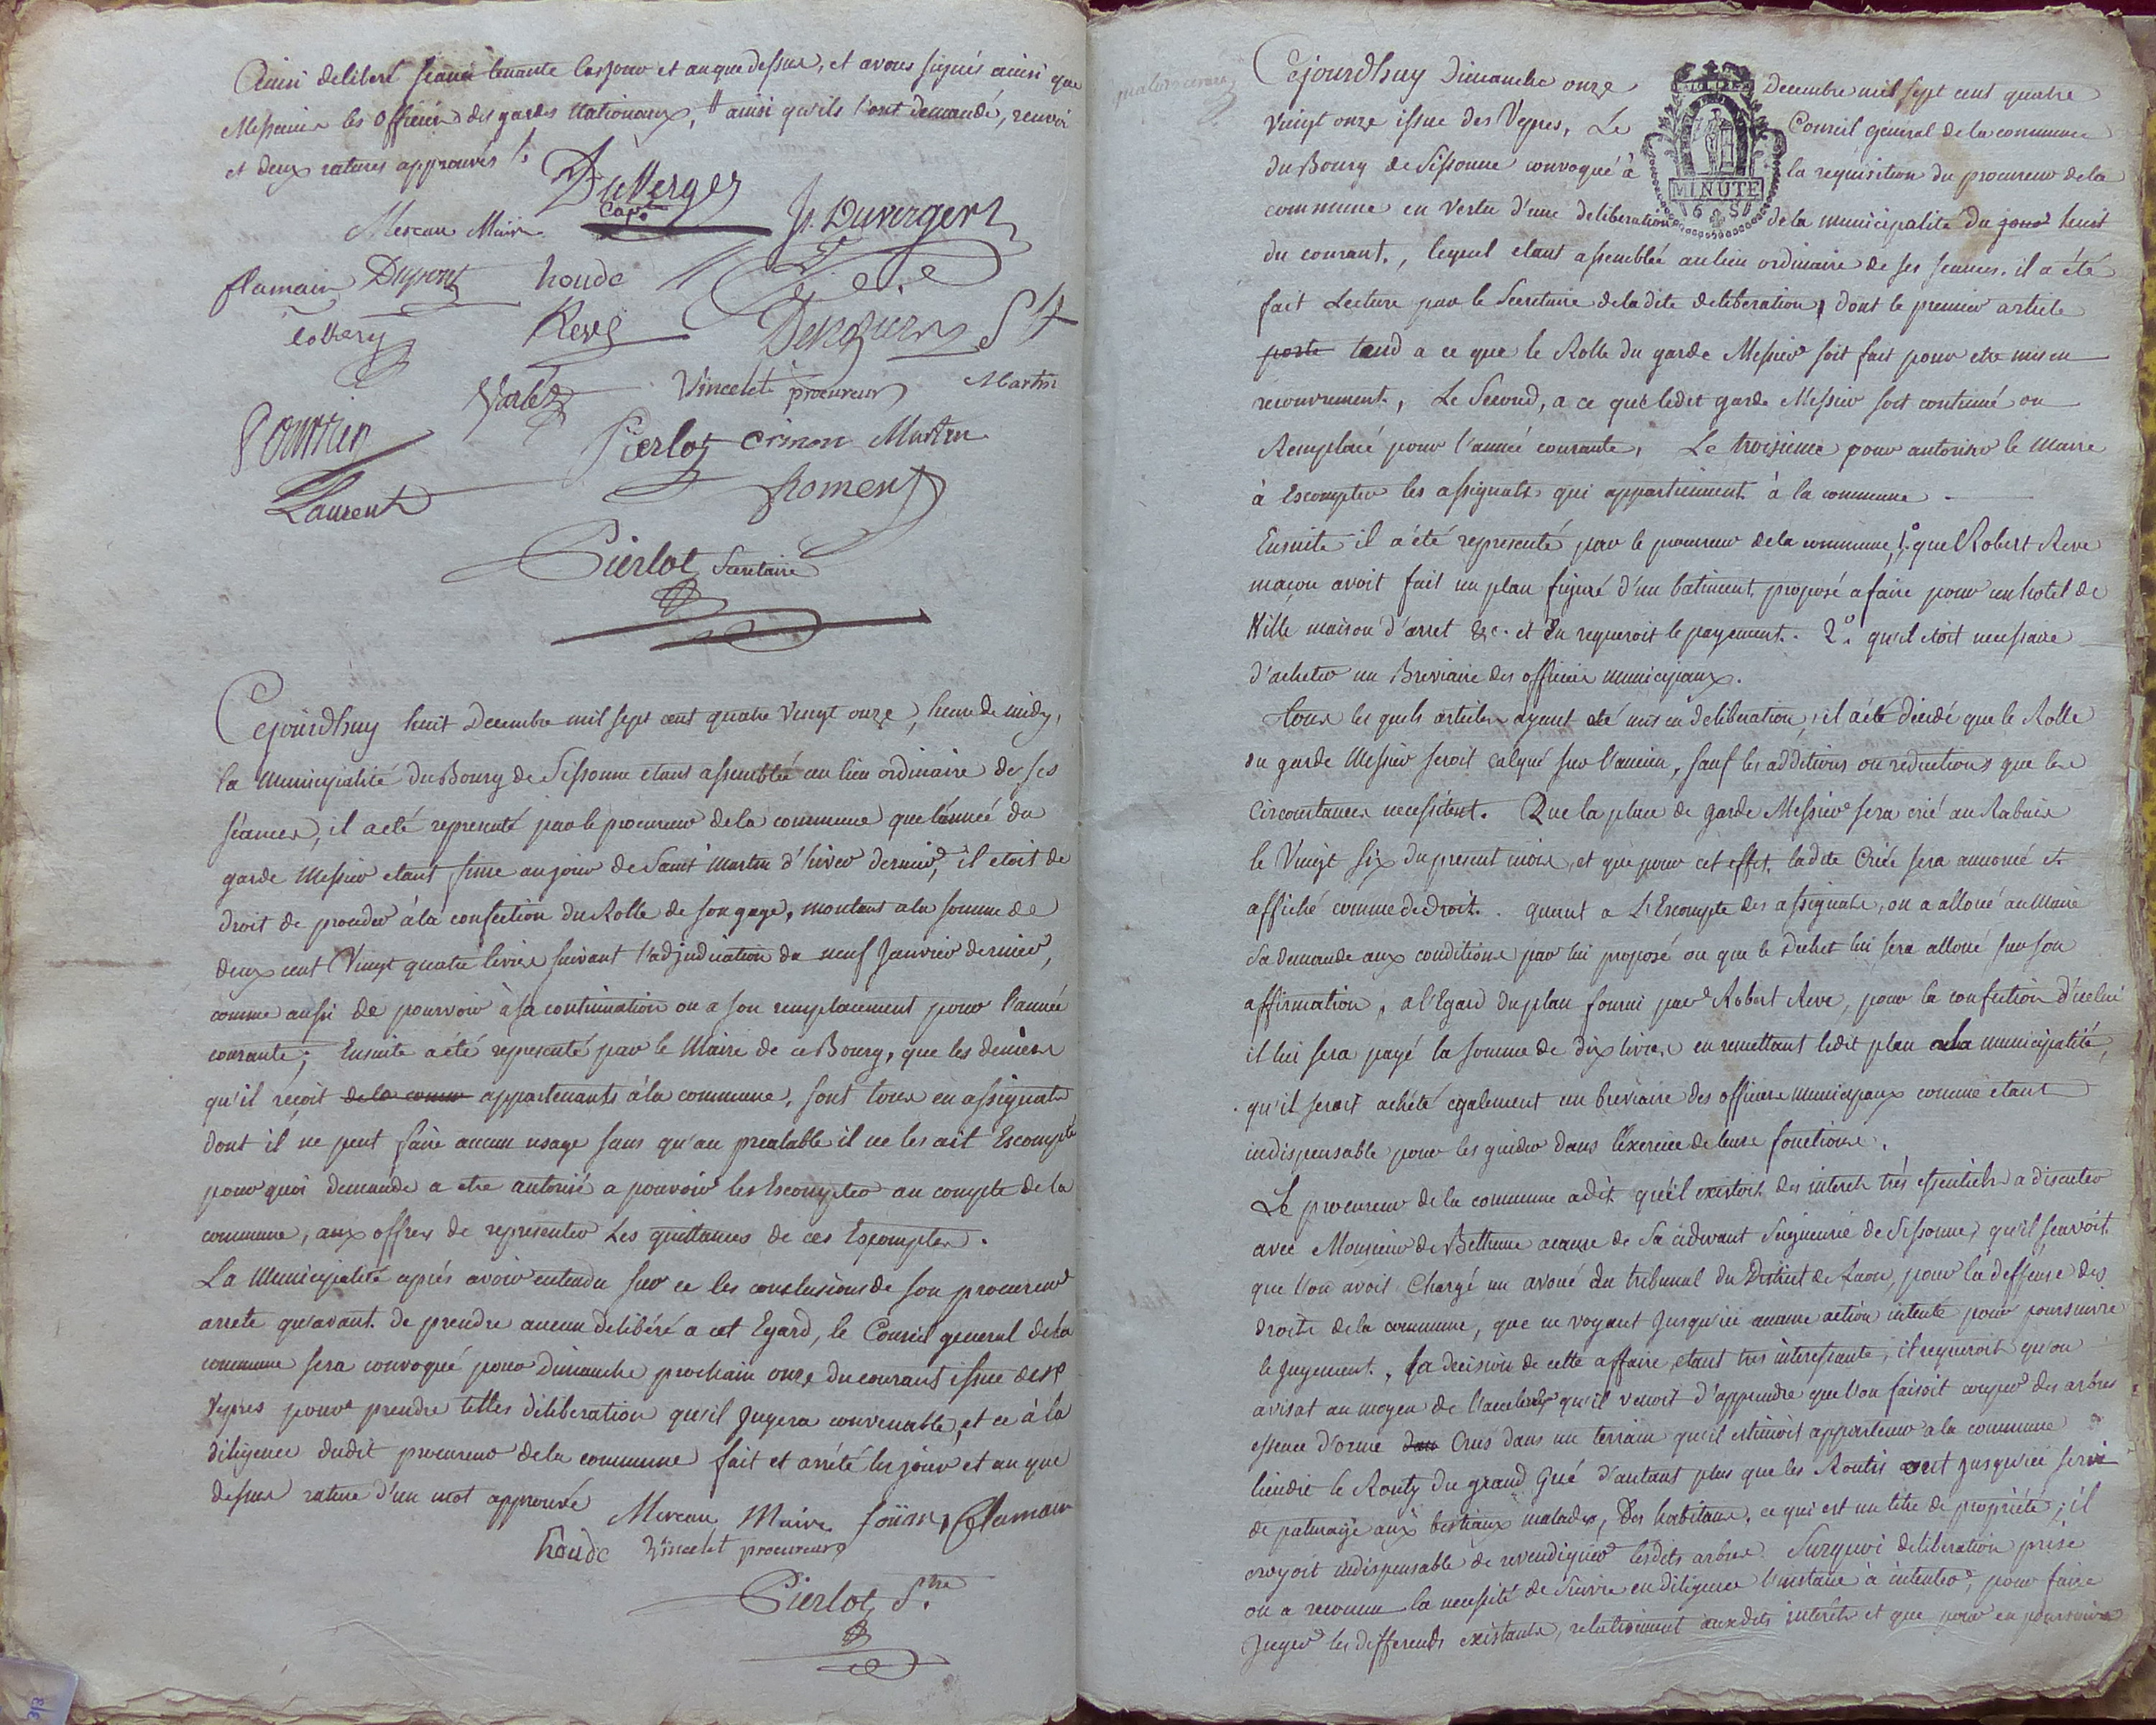 Ainsi deliberé seance tenante les jour et an que dessus, et avons signés ainsi que
Messieurs les officiers des gardes Nationaux, # ainsi qu'ils l'ont demandé, renvoi
et deux ratures approuvés /.
Duverger
Capt.
Mereau Maire
J. Duvergert
flamain Dupont houde
Lottery Reve
St
Varlet Vincelet procureur Martin
Pierlot Crinon Martin
Laurent
Romens
Pierlot Secretaire
Cejourdhuy huit Decembre mil sept cent quatre vingt onze, heure de midy,
la Municipalité du Bourg de Sissonne etant assemblée au lieu ordinaire de ses
séances, il a eté representé par le procureur de la commune que l'année du
garde Messier etant finie au jour de Saint Martin d'hiver dernier, il etoit de
droit de proceder à la confection du Rolle de son gage, montant a la somme de
deux cent Vingt quatre livres suivant l'adjudication du neuf Janvier dernier,
comme aussi de pourvoir à sa continuation ou a son remplacement pour l'année
courante; Ensuite a été representé par le Maire de ce Bourg, que les deniers
qu'il reçoit de la comm appartenants à la commune, sont tous en assignats
dont il ne peut faire aucun usage sans qu'au prealable il ne les ait Escompté
pour quoi demande a etre autorisé a pouvoir les Escompter au compte de la
commune, aux offres de representer Les quittances de ces Escomptes.
La Municipalité après avoir entendu sur ce les conclusions de son procureur
arrete qu'avant de prendre aucun delibéré a cet Egard, le Conseil general de la
commune sera convoqué pour Dimanche prochain onze du courant issue des
Vepres pour prendre telles déliberation qu'il Jugera convenable, et ce à la
diligence dudit procureur de la commune fait et arrété les jour et an que
dessus rature d'un mot approuvée
Mereau Maire flamain
houde Vincelet procureur
Pierlot S.re
Cejourdhuy Dimanche onze Decembre mil sept cent quatre
vingt onze issue des Vepres, Le Conseil general de la commune
MINUTE
du Bourg de Sissonne convoqué à la requisition du procureur de la
commune en vertu d'une deliberation de la municipalité du jour huit
du courant, lequel etant assemblée au lieu ordinaire de ses seances, il a été
fait Lecture par le Secretaire de la dite deliberation, dont le premier article
porte tend a ce que le Rolle du garde Messier soit fait pour etre mis en
recouvrement, Le Second, a ce que ledit garde Messier soit continué ou
Remplacé pour l'année courante, Le troisieme pour autoriser le Maire
à Escompter les assignats qui appartiennent à la commune
Ensuite il a été representé par le procureur de la commune, 1.° que Robert Reve
maçon avoit fait un plan figuré d'un batiment proposé a faire pour un hotel de
Ville maison d'arret &c. et En requeroit le payement. 2.° qu'il etoit necessaire
d'acheter un Breviaire des officiers municipaux.
Tous les quels articles ayant eté mis en deliberation, il a été decidé que le Rolle
du garde Messier seroit calqué sur l'ancien, sauf les additions ou reductions que les
Circonstances necessitent. Que la place de garde Messier sera crié au Rabais
le Vingt six du present mois, et que pour cet effet, ladite Criée sera annoncé et
affiché comme de droit. quant a L'Escompte des assignats, on a alloué au Maire
sa demande aux conditions par lui proposé ou que le Dechet lui sera alloué sur son
affirmation, a l'Egard du plan fourni par Robert Reve, pour la confection d'icelui
il lui sera payé la somme de dix livres en remettant ledit plan a la municipalité,
qu'il seroit achété egalement un breviaire des officiers municipaux comme etant
indispensable pour les guider dans l'exercice de leurs fonctions.
Le procureur de la commune a dit qu'il existoit des interets très essentiels a discuter
avec Monsieur de Bethune a cause de Sa cidevant Seigneurie de Sissonne, qu'il sçavoit
que l'on avoit Chargé un avoué du tribunal du District de Laon, pour la deffense des
droits de la commune, que ne voyant Jusqu'ici aucune action intenté pour poursuivre
le Jugement, la decision de cette affaire etant tres interessante, il requeroit qu'on
avisat au moyen de l'accelerer qu'il venoit d'apprendre que l'on faisoit couper des arbres
essence d'orme dan Crus dans un terrain qu'il estimoit appartenir a la commune
liendit le Routy du grand Gué d'autant plus que les Routis ont jusqu'ici servi
de paturage aux bestiaux malades, Des habitans, ce qui est un titre de propriété; il
croyoit indispensable de revendiquer lesdits arbres. Surquoi deliberation prise
on a reconnu la necessité de Suivre en diligence l'instance à intenter, pour faire
Juger les differends existants, relativement auxdits interets et que pour en poursuivre